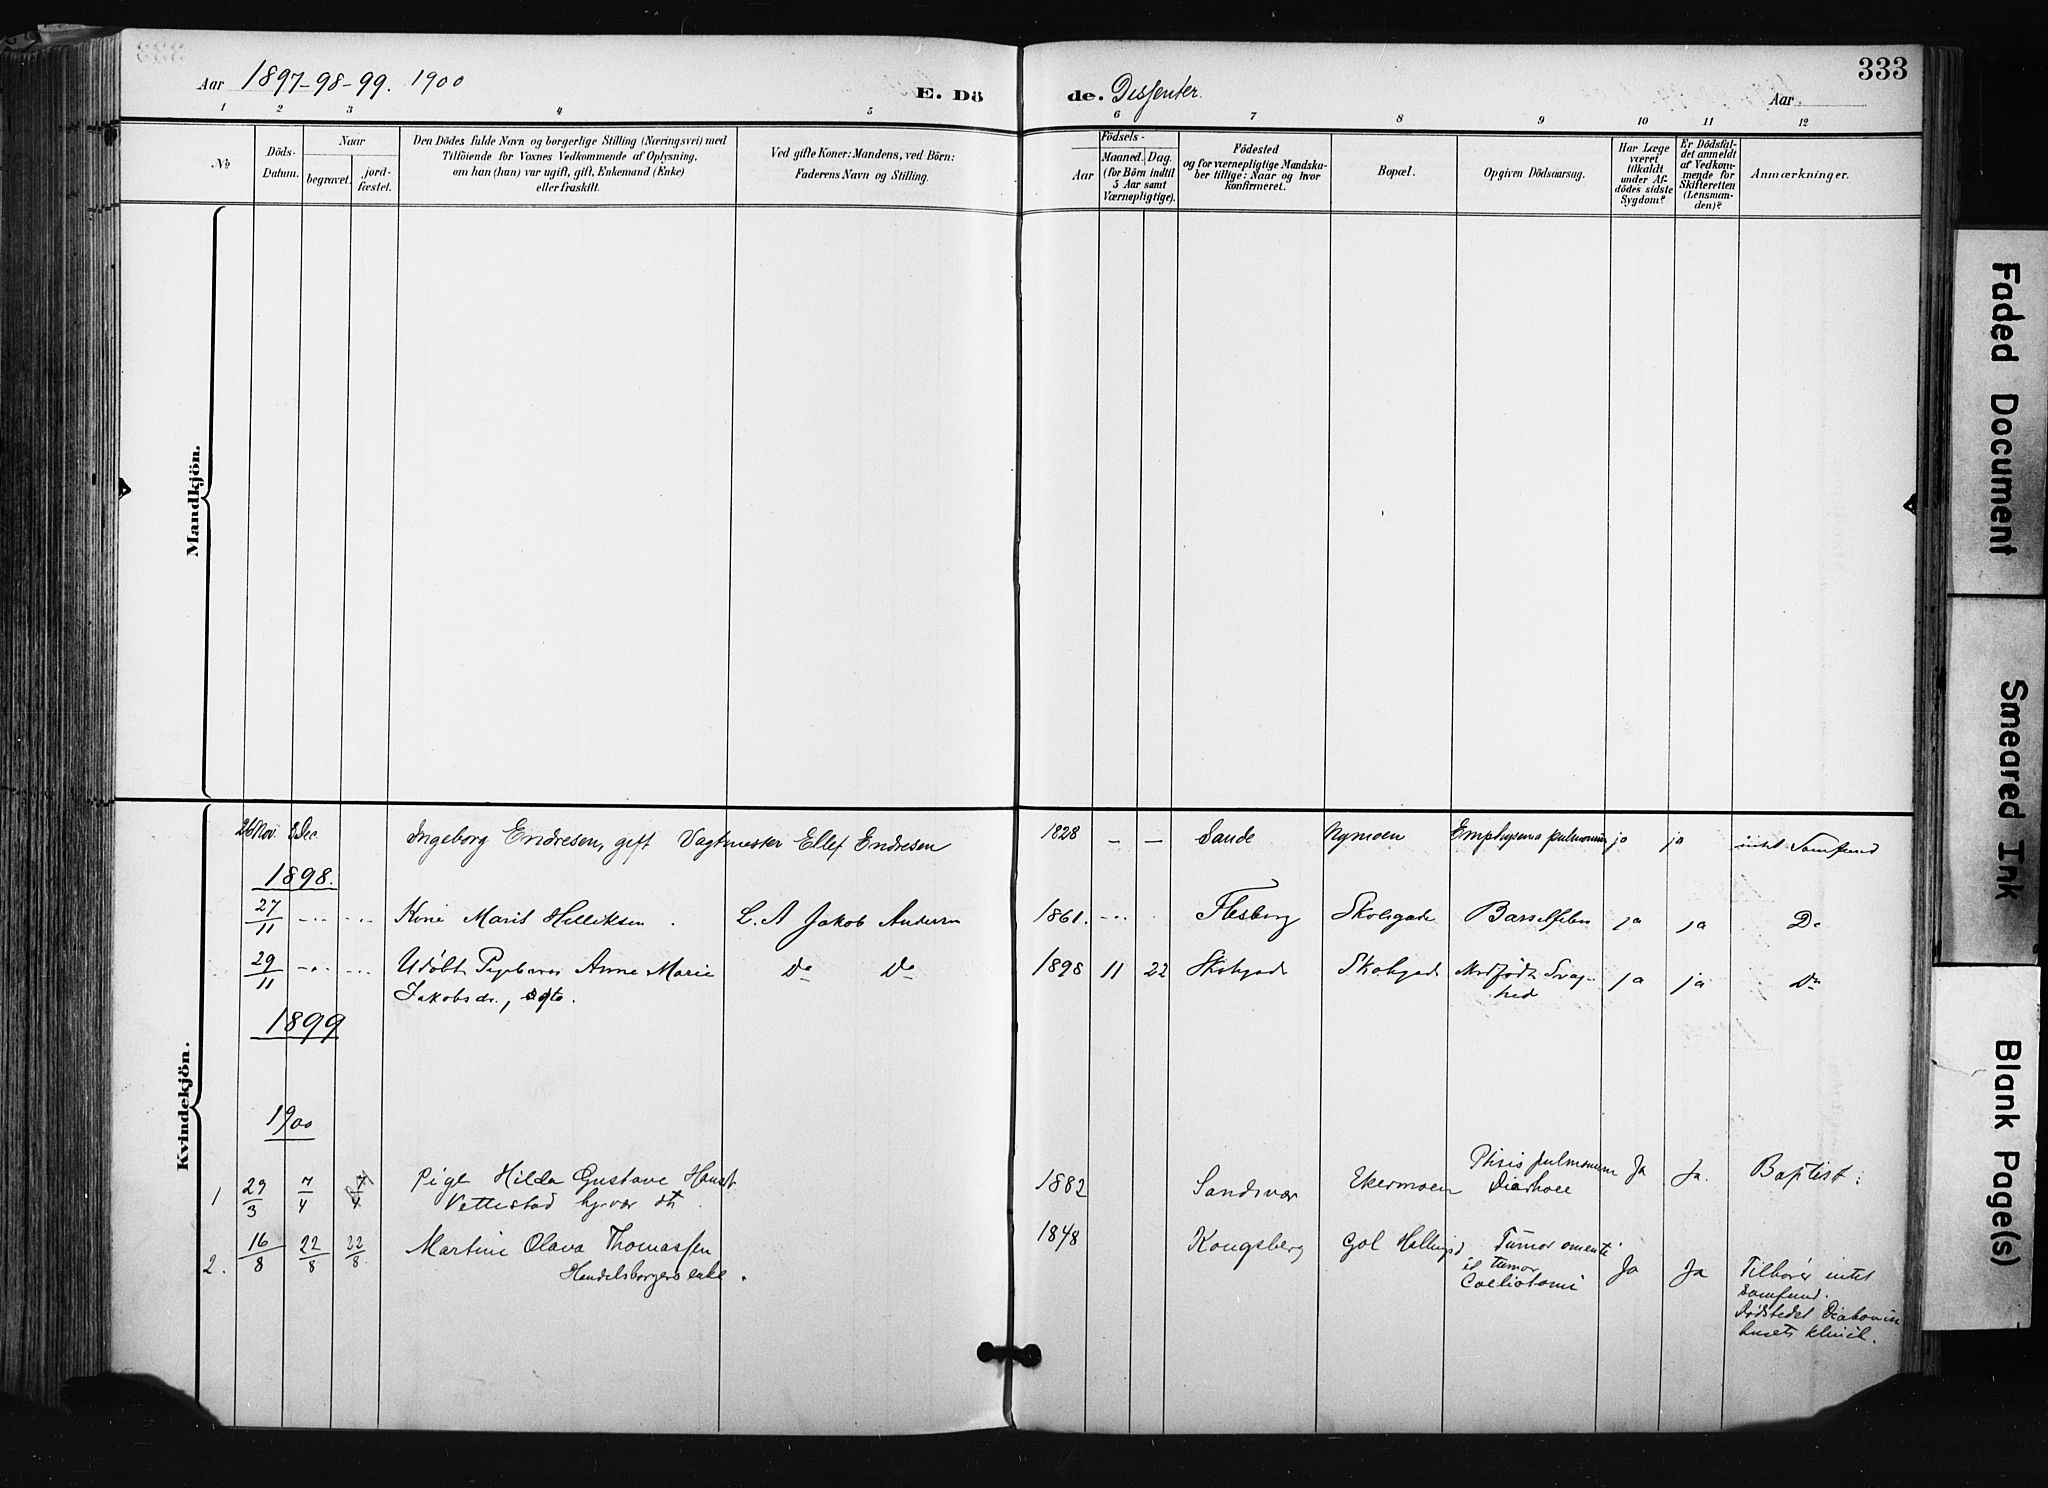 333
Aar 1897-98-99. 1900
E. Döde. Dissenter.
Aar
1 2 3 4 5 6 7 8 9 10 11 12
No
Döds-Datum.
Naar
begravet.
jordfæstet.
Den Dödes fulde Navn og borgerlige Stilling (Næringsvei) med
Tilföiende for Voxnes Vedkommende af Oplysning,
om han (hun) var ugift, gift, Enkemand (Enke)
eller fraskilt.
Ved gifte Koner: Mandens, ved Börn:
Faderens Navn og Stilling.
Födsels-
Aar
Maaned. Dag.
(for Börn indtil
5 Aar samt
Værnepligtige).
Födested
og for værnepligtige Mandskaber tillige: Naar og hvor
konfirmeret.
Bopæl.
Opgiven Dödsaarsag.
Har Læge
været
tilkaldt
under Afdödes sidste
Sygdom?
Er Dödsfaldet anmeldt
af Vedkommende for
Skifteretten
(Lensmanden)?
Anmærkninger.
Mandkjön.
Kvindekjön.
26 Nov. 2 Dec. Ingeborg Endresen, gift Vagtmester Ellef Endresen 1828 — — Sande Nymoen Emphysema pulmonum ja ja intet Samfund
1898.
27/11 Kone Marit Helliksen L. A Jakob Andersen 1861. Flesberg Skolegade Barselfeber ja ja Do
29/11 Udöbt Pigebarn Anne Marie Do Do 1898 11 22 Skolegade Skolegade Medfödt Svag-
Jakobsdr., ægte. hed ja ja Do
1899
1900
1 29/3 7/4 7/4 Pige Hilda Gustave 1882 Sandsvær Ptisis pulmonum Ja Ja. Baptist.
Vettestad Diarhoee
2. 16/8 22/8 22/8 Martine Olava Thomassen 1848 Kongsberg Gol Tumor omenti
Handelsborgers enke. tumor
Coeliotomi Ja Ja Tilhörer intet
samfund.
Dödstedet
husets klinik.
Faded Document
Smeared Ink
Blank Page(s)